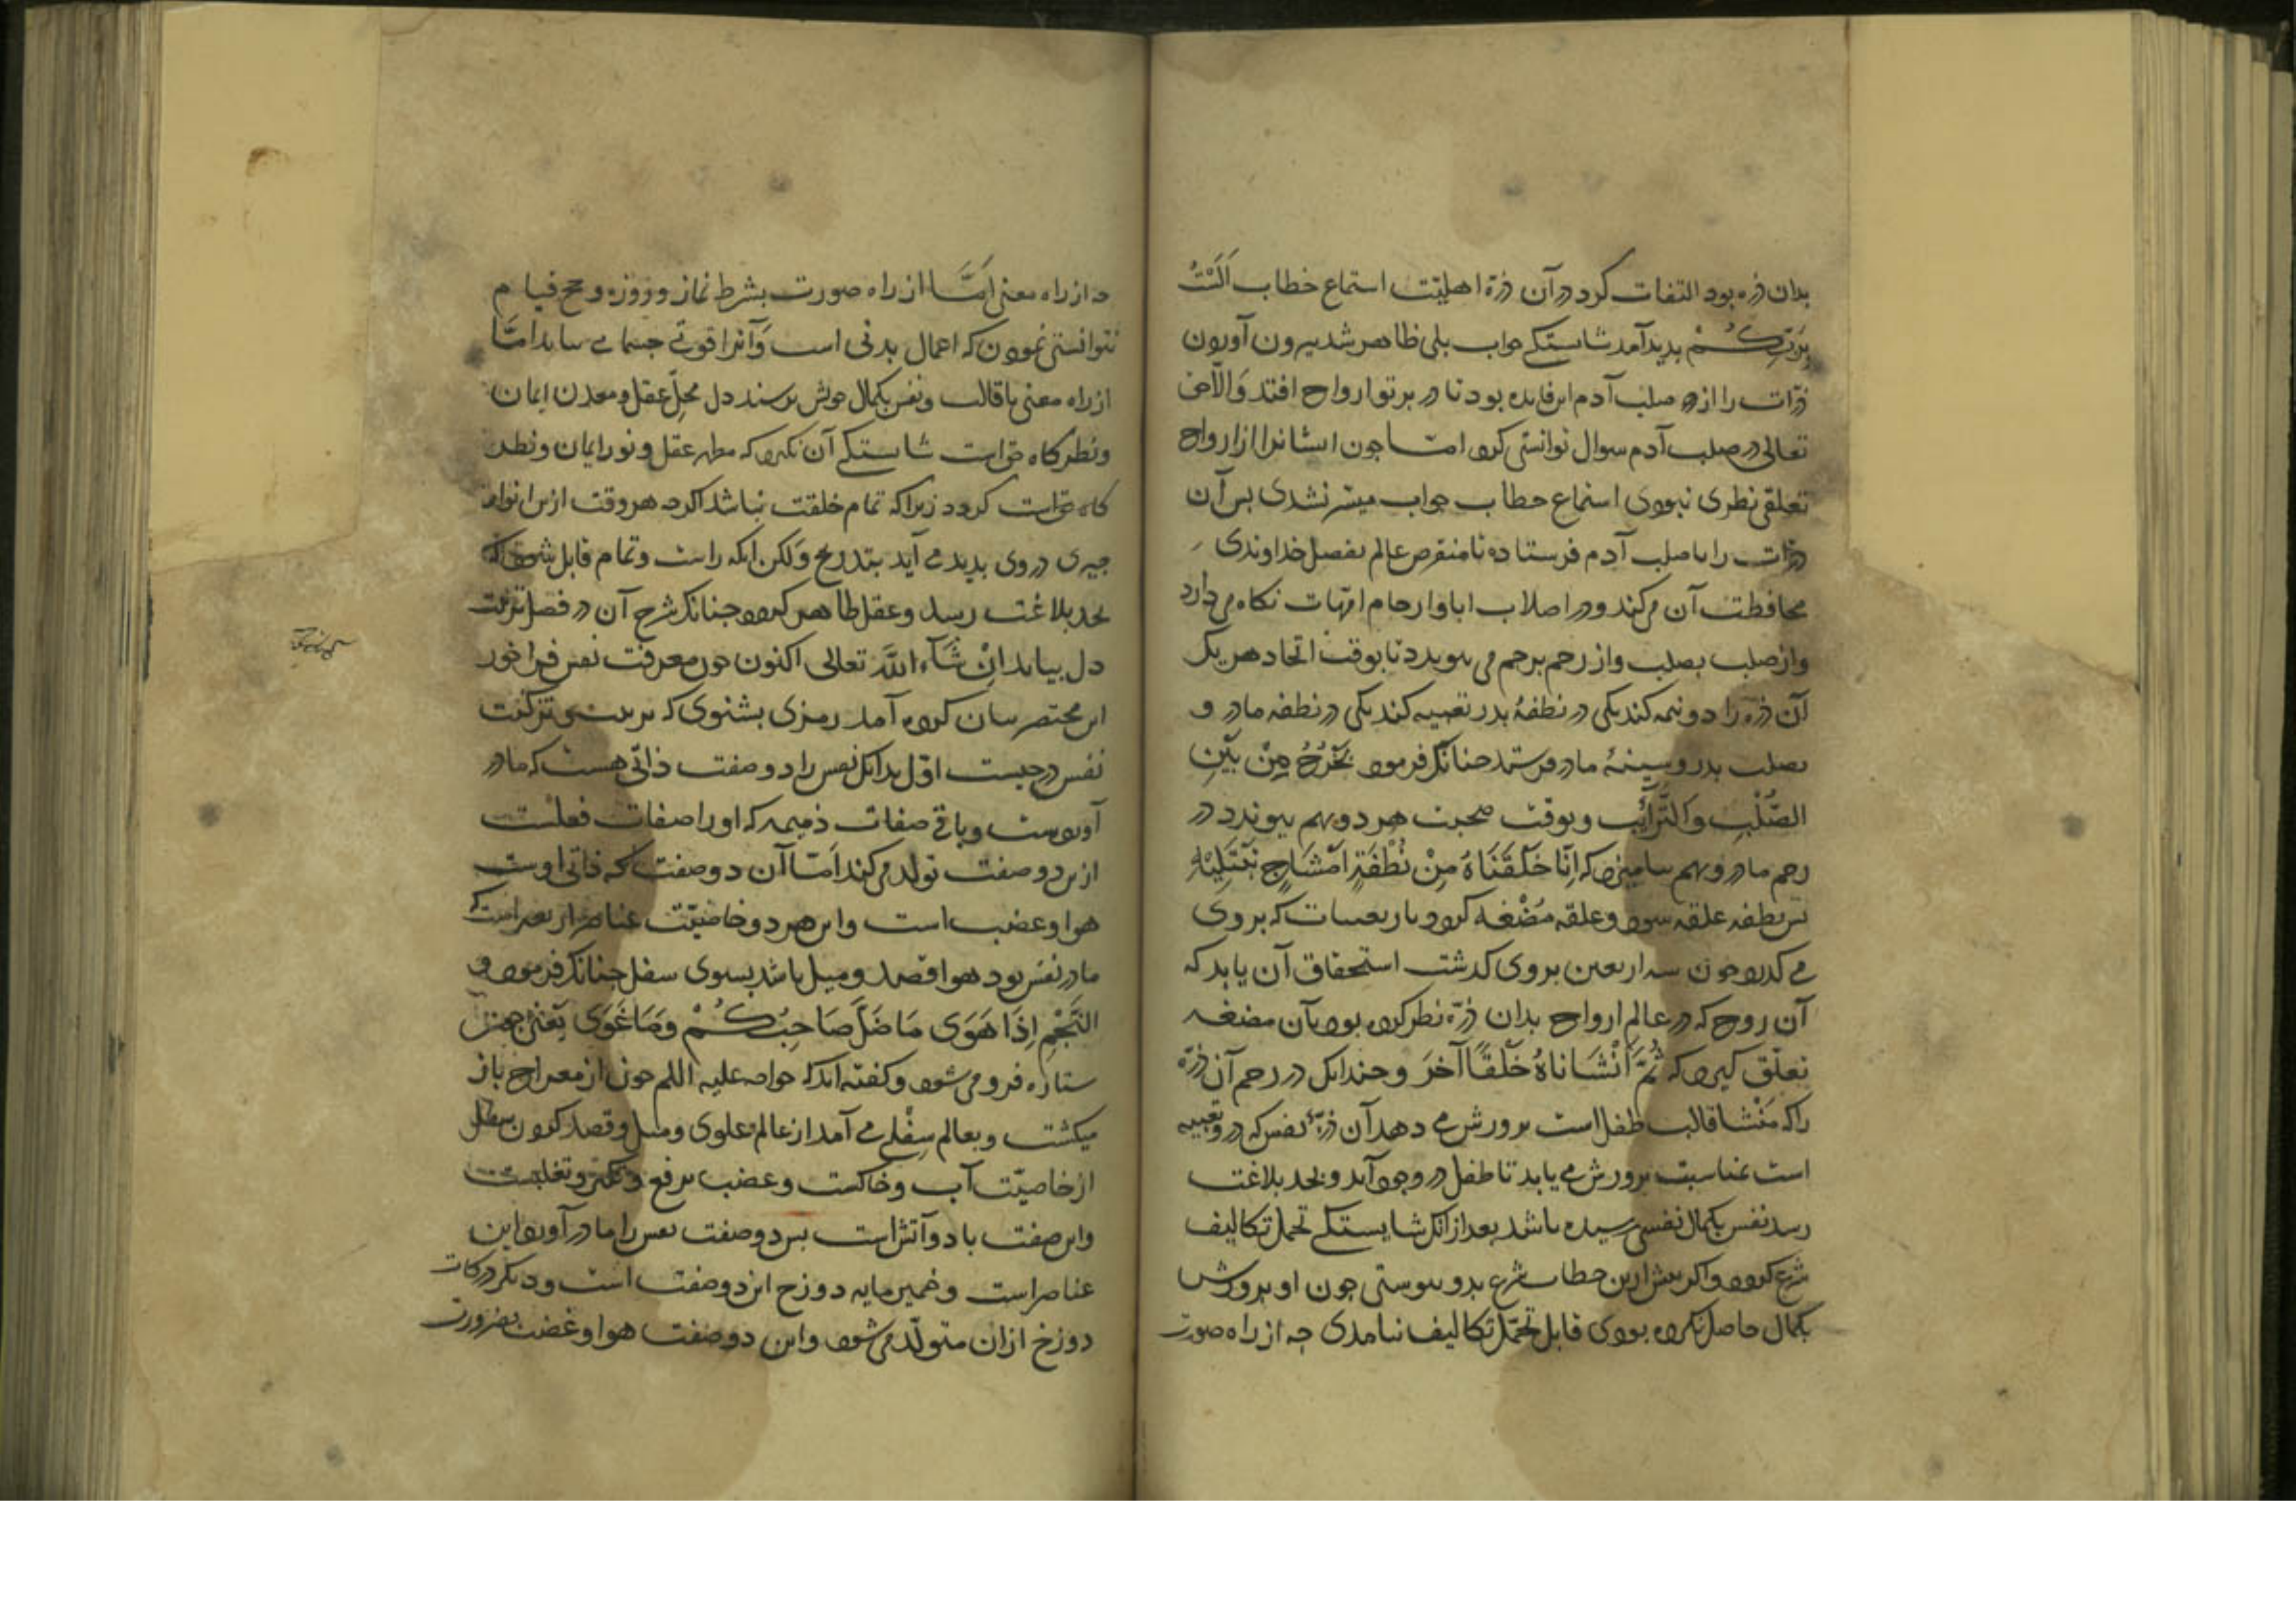 بدان ذره بود التفات کرد در آن ذرّة اهلیّت استماع خطاب اَلَسْتُ
بِرَبِّكُمْ پدید آمد شایستگی جواب بلی ظاهر شد بیرون آوردن
ذرّات را از صلب آدم این فایده بود تا در پرتو ارواح افتد وَالّا حق
تعالی در صلب آدم سوال توانستی کرد امّا چون ایشانرا از ارواح
تعلّق نظری نبودی استماع خطاب جواب میسّر نشدی پس آن
ذرّات را با صلب آدم فرستاده تا منقرض عالم بفضل خداوندی
محافظت آن می‌کند و در اصلاب ابا و ارحام امّهات نگاه می‌دارد
و از صلب بصلب و از رحم برحم می‌پیوندد تا بوقت اتحاد هر یک
آن ذره را دو نیمه کند یکی در نطفهٔ پدر تعبیه کند یکی در نطفه مادر و
بصلب پدر و سینهٔ مادر فرستد چنانک فرمود یَخْرُجُ مِنْ بَیْنِ
الصُّلْبِ وَالتَّرَائِبِ و بوقت صحبت هر دو بهم پیوندد در
رحم مادر و بهم بیامیزد که اِنَّا خَلَقْنَاهُ مِنْ نُطْفَةٍ اَمْشَاجٍ نَبْتَلِیْهِ
پس نطفه علقه شود و علقه مُضْغه گردد باربعینات که بر وی
می گذرد چون سه اربعین بر وی گذشت استحقاق آن یابد که
آن روح که در عالم ارواح بدان ذرّه نظر کرده بود بآن مضغه
تعلّق گیرد که ثُمَّ اَنْشَاناهُ خَلْقًا آخَرَ و چندانک در رحم آن ذرّه
را که مَنْشا قالب طفل است پرورش می دهد آن ذرّهٔ نفس که در و تعبیه
است بمناسبت پرورش می یابد تا طفل در وجود آید و بحد بلاغت
رسد نفس بکمال نفسی رسیده باشد بعد از انک شایستگی تحمل تکالیف
شرع گردد و اگر پیش ازین خطاب شرع بدو پیوستی چون او پرورش
بکمال حاصل نکرده بودی قابل تحمّل تکالیف نیامدی چه از راه صورت
چه از راه معنی اَمَّا از راه صورت بشرط نماز و روزه و حج قیام
نتوانستی نمودن که اعمال بدنی است وَآنرا قوتی جسمانی می باید امّا
از راه معنی تا قالب و نفس بکمال خویش نرسند دل محلّ عقل و معدن ایمان
و نظرگاه حق است شایستگی آن نگیرد که مظهر عقل و نور ایمان و نظر
گاه حق است گردد زیرا که تمام خلقت نباشد اگرچه هر وقت ازین انوار
چیزی در وی پدید می آید بتدریج وَلکن آنکه راست و تمام قابل شود که
بحد بلاغت رسد و عقل ظاهر گردد چنانک شرح آن در فصل تربیت
دل بیاید اِنْ شَآءَ اللّٰه تعالی اکنون چون معرفت نفس فراخور
این مختصر بیان کرده آمد رمزی بشنوی که تربیت و تزکیت
نفس در چیست اوّل بدانک نفس را دو صفت ذاتی هست که مادر
آورده است و باقی صفات ذمیمه که او را صفات فعلست
ازین دو صفت تولد می‌کند اَمّا آن دو صفت که ذاتی اوست
هوا و غضب است و این هر دو خاصیّت عناصر اربعه است که
مادر نفس بود هوا قصد و میل باشد بسوی سفل چنانک فرمود وَ
النَّجْمِ اِذَا هَوَی مَا ضَلَّ صَاحِبُكُمْ وَمَا غَوَی یَعْنی چون
ستاره فرو می‌شود و گفته‌اند که خواجه علیه السلم چون از معراج باز
میگشت و بعالم سِفْلی می آمد از عالم علوی و میل و قصد کردن بسفل
از خاصیّت آب و خاکست و غضب ترفع و تکبّر و تغلبست
و این صفت باد و آتش است پس دو صفت نفس را مادر آورد این
عناصر است و خمیر مایه دوزخ این دو صفت است و دیگر درکات
دوزخ ازان متولّد می‌شود و این دو صفت هوا و غضب بضرورت